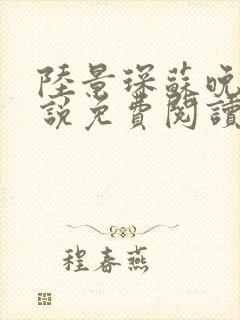 陸景琛蘇晚
說免費閱讀
程春燕